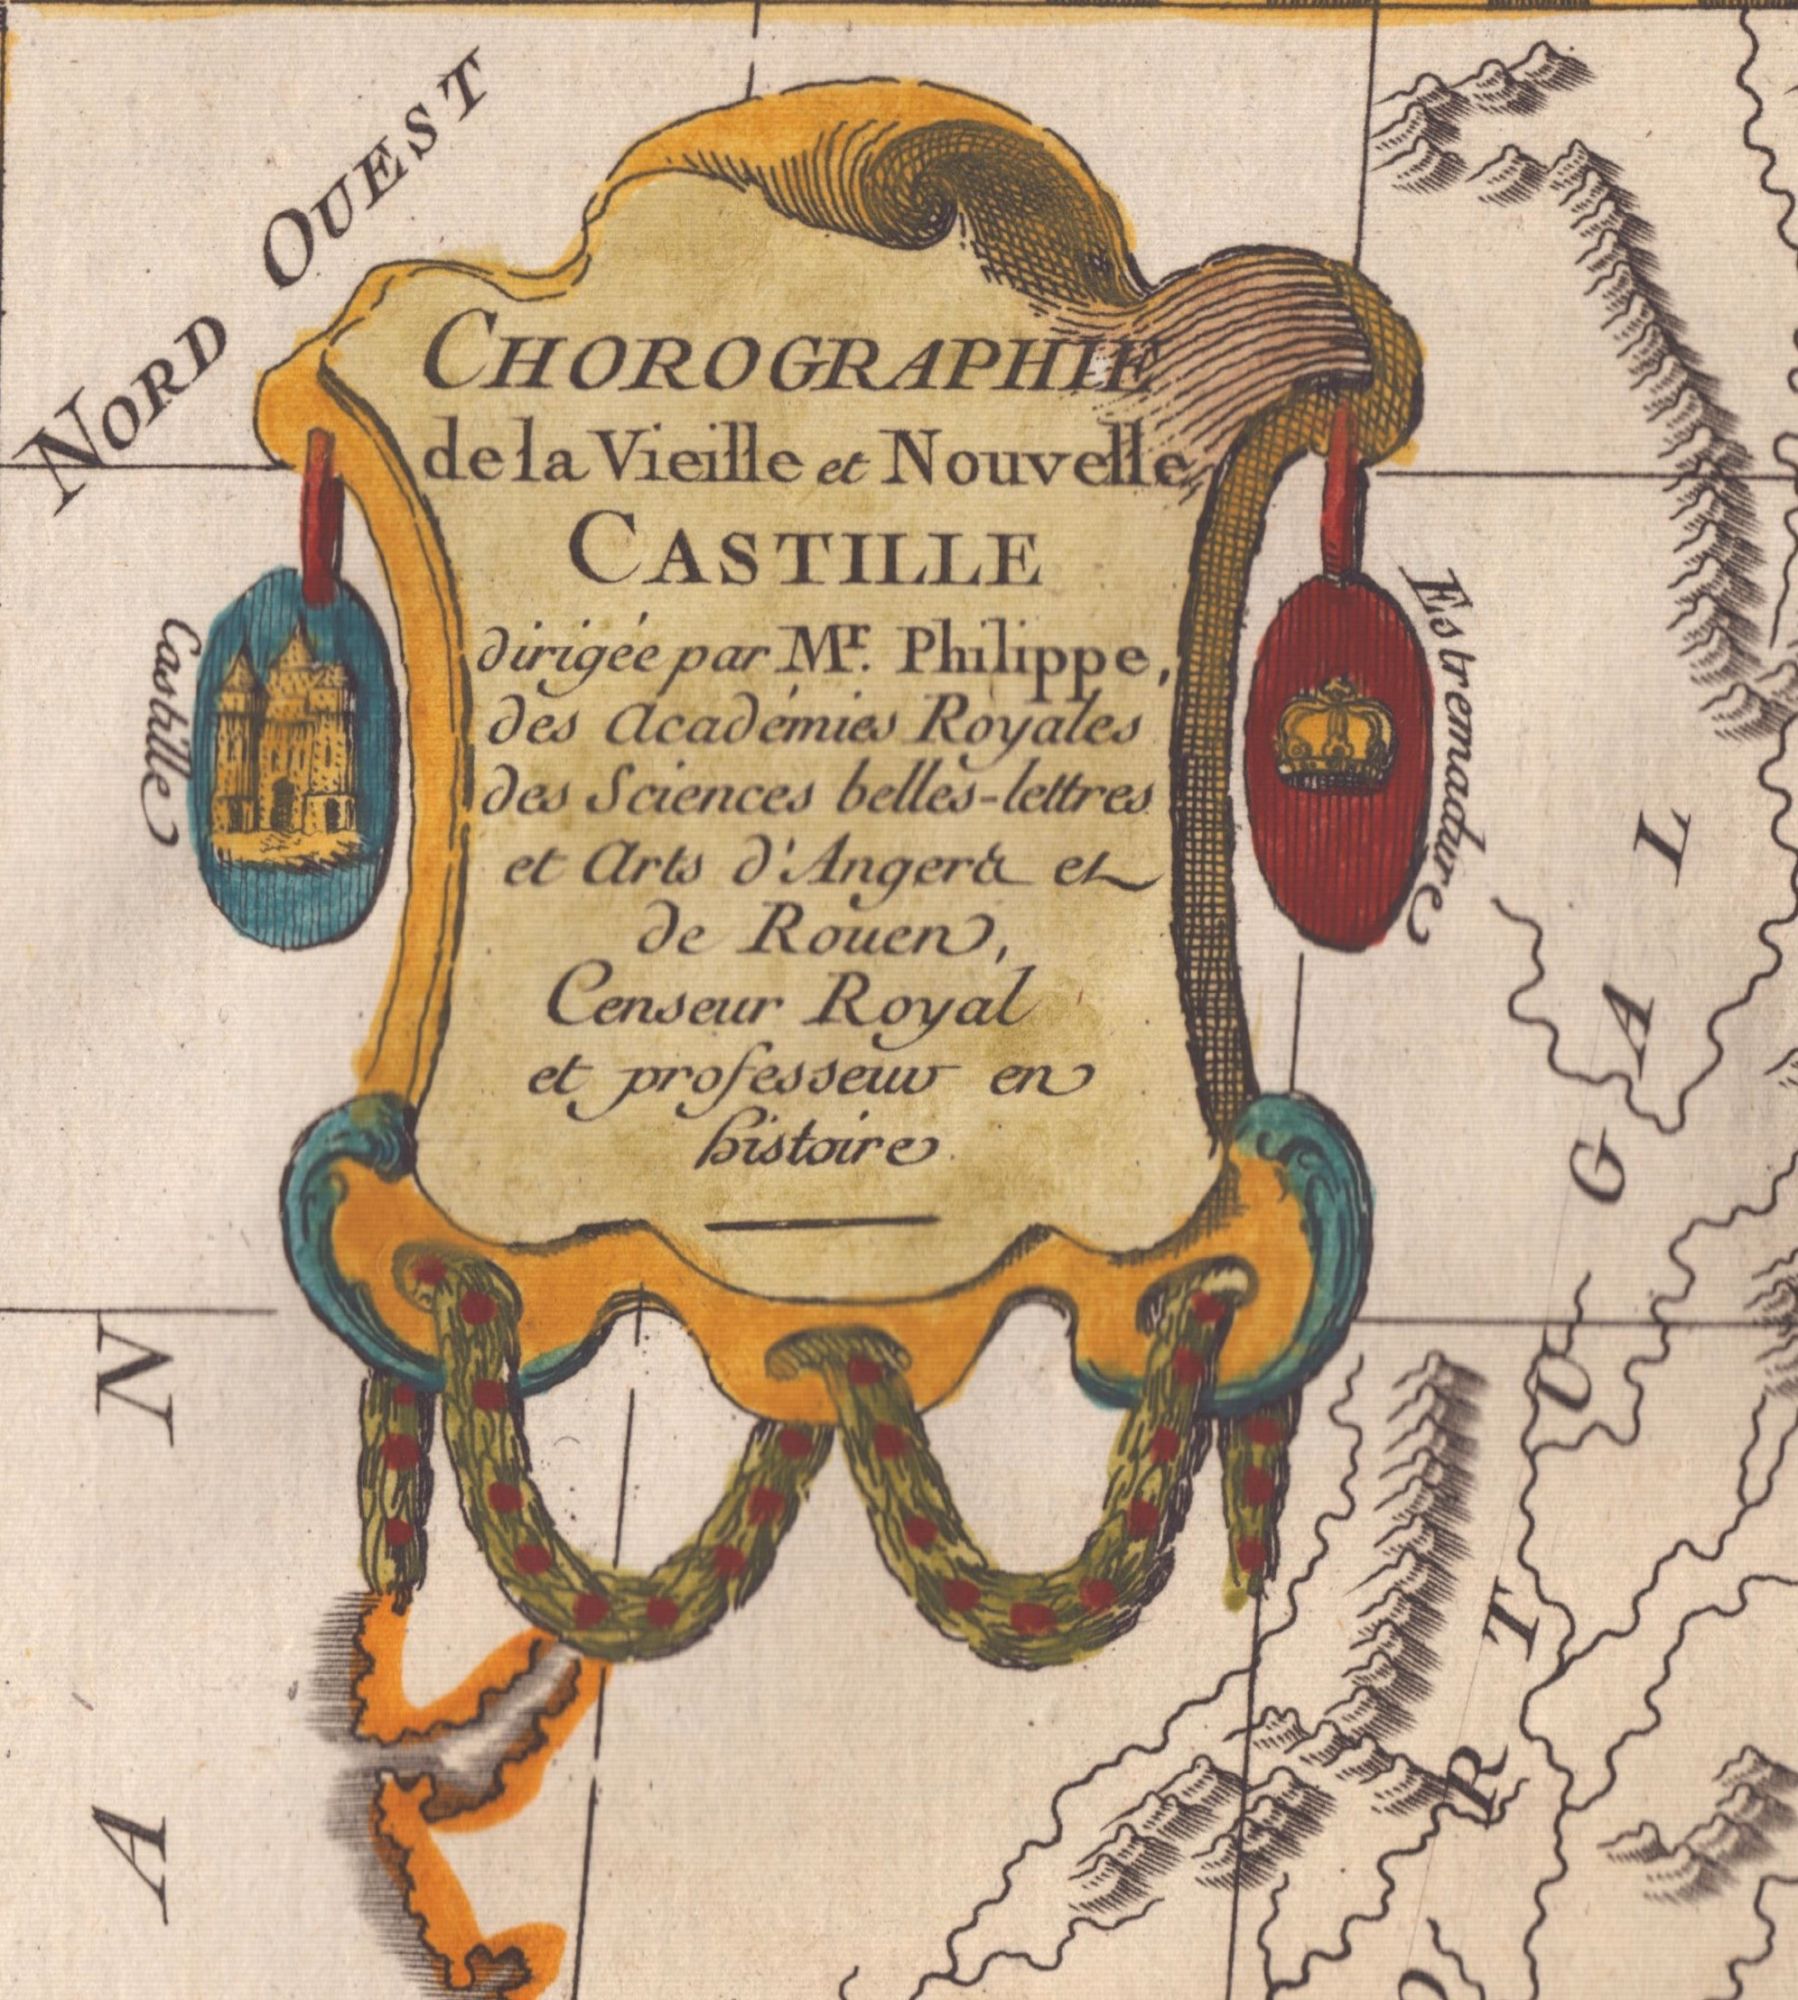 NORD OUEST
CHOROGRAPHIE
de la Vieille et Nouvelle
CASTILLE
dirigée par Mr. Philippe,
des Académies Royales
des Sciences belles-lettres
et Arts d'Angers & et
de Rouen,
Censeur Royal
et professeur en
histoire
Castille
Estremadure
PORTUGAL
N
A